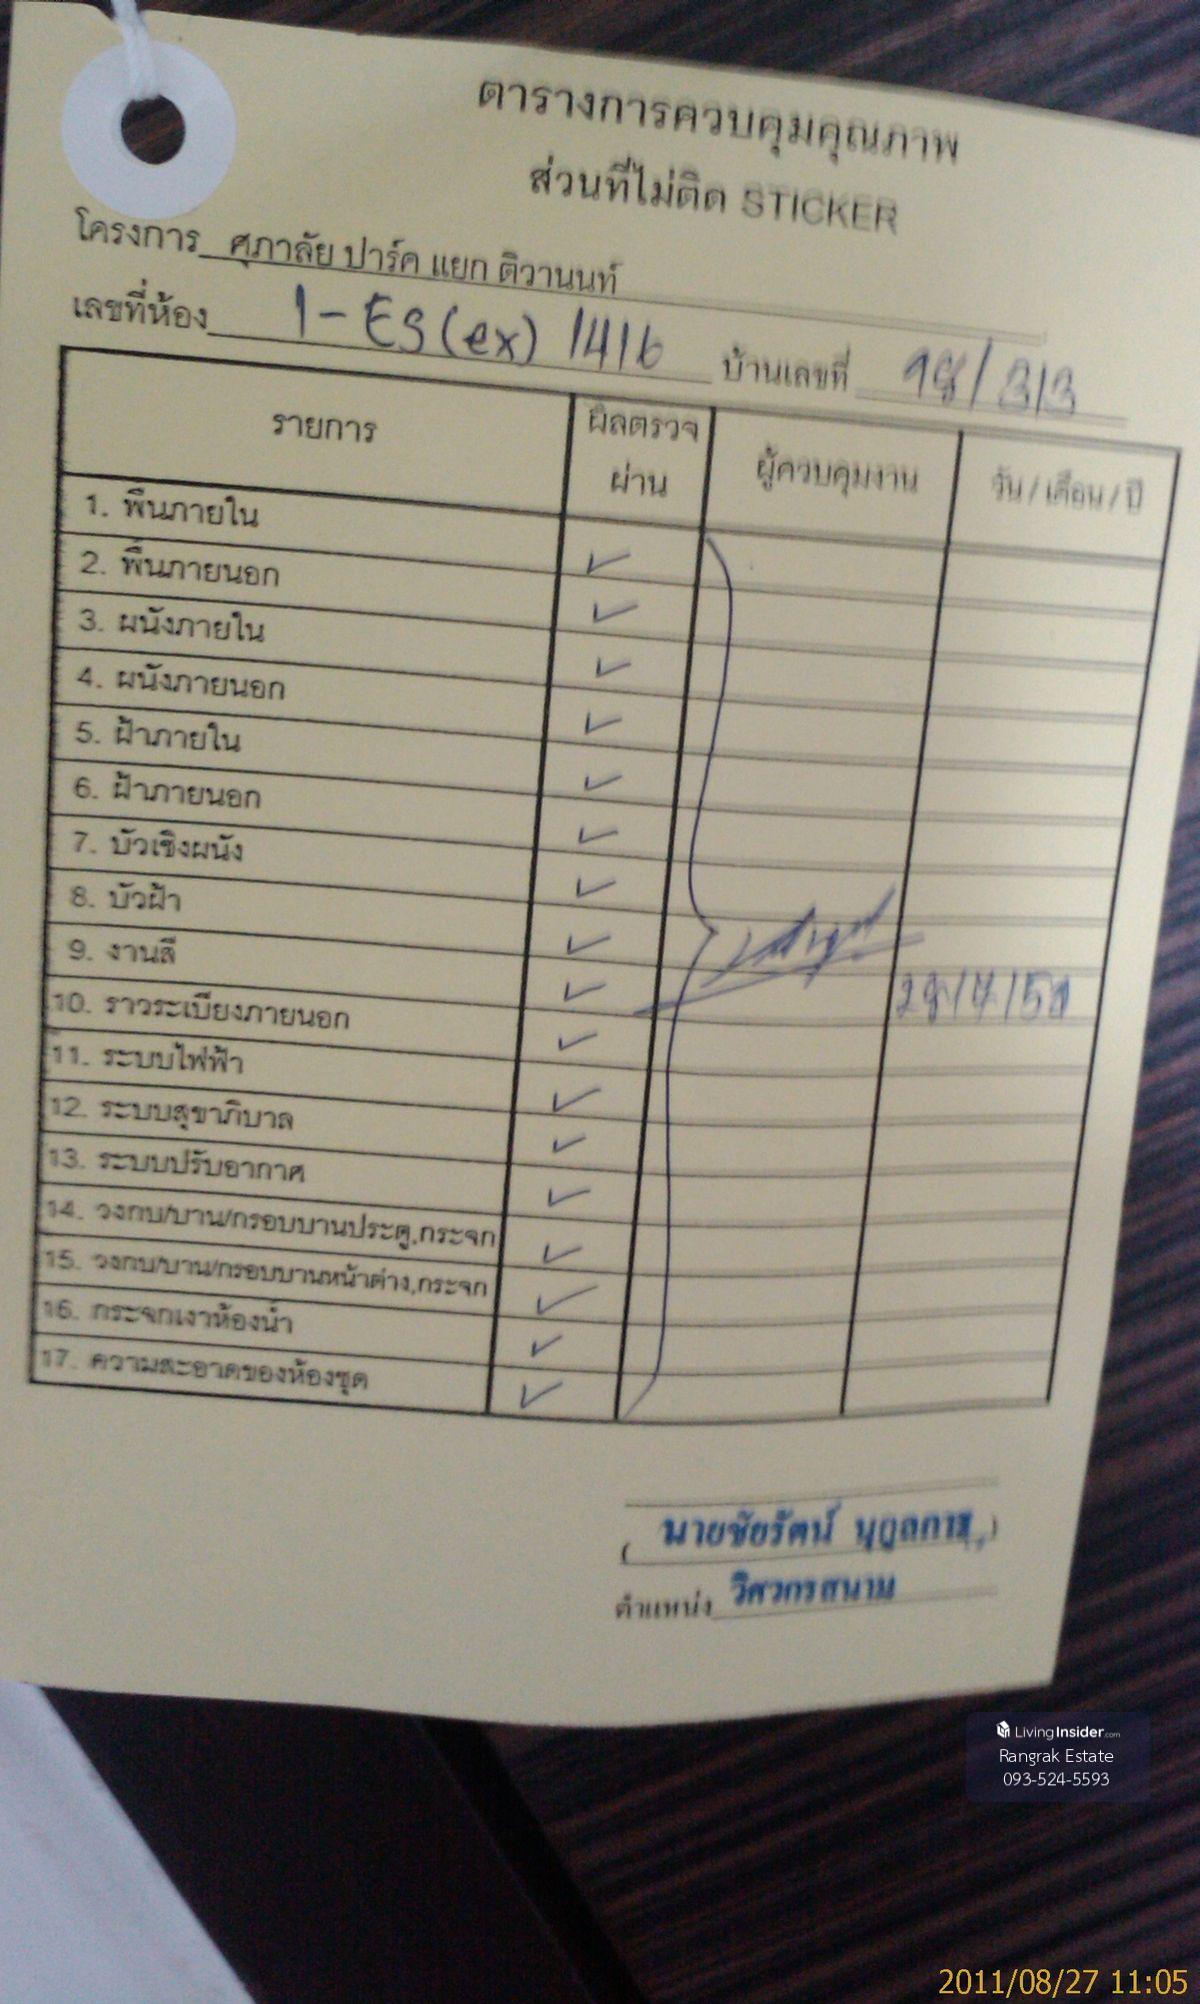 ตารางการควบคุมคุณภาพ
ส่วนที่ไม่ติด STICKER
โครงการ ศุภาลัย ปาร์ค แยก ติวานนท์
เลขที่ห้อง 1-ES(ex) 1416 บ้านเลขที่ 98/313
รายการ ผลตรวจ ผ่าน ผู้ควบคุมงาน วัน / เดือน / ปี
1. พื้นภายใน
2. พื้นภายนอก
3. ผนังภายใน
4. ผนังภายนอก
5. ฝ้าภายใน
6. ฝ้าภายนอก
7. บัวเชิงผนัง
8. บัวฝ้า
9. งานสี
10. ราวระเบียงภายนอก
11. ระบบไฟฟ้า
12. ระบบสุขาภิบาล
13. ระบบปรับอากาศ
14. วงกบ/บาน/กรอบบานประตู,กระจก
15. วงกบ/บาน/กรอบบานหน้าต่าง,กระจก
16. กระจกเงาห้องน้ำ
17. ความสะอาดของห้องชุด
( นายชัยรัตน์ )
ตำแหน่ง วิศวกรสนาม
LivingInsider.com
Rangrak Estate
093-524-5593
2011/08/27 11:05